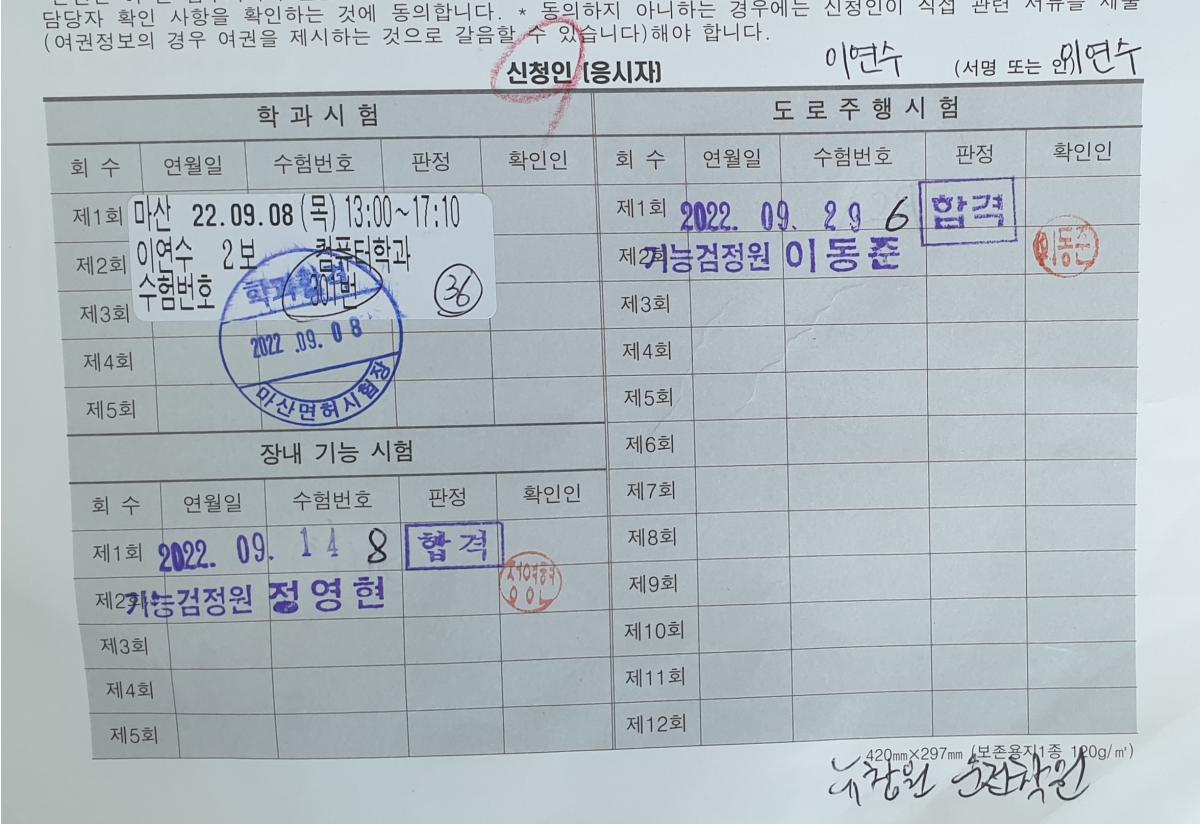 담당자 확인 사항을 확인하는 것에 동의합니다. * 동의하지 아니하는 경우에는 신청인이 직접 관련 서류를 제출
(여권정보의 경우 여권을 제시하는 것으로 갈음할 수 있습니다)해야 합니다.
9
신청인 (응시자) 이연수 (서명 또는 인) 이연수
학 과 시 험
회 수 연월일 수험번호 판정 확인인
제1회 마산 22.09.08 (목) 13:00~17:10
제2회 이연수 2보 컴퓨터학과
수험번호 301번 36
학과합격
제3회
2022 .09. 08
제4회
마산면허시험장
제5회
장내 기능 시험
회 수 연월일 수험번호 판정 확인인
제1회 2022. 09. 14 8 합격
제2회 기능검정원 정영현
제3회
제4회
제5회
도 로 주 행 시 험
회 수 연월일 수험번호 판정 확인인
제1회 2022. 09. 29 6 합격
제2회 기능검정원 이동준 이동준
제3회
제4회
제5회
제6회
제7회
제8회
제9회
제10회
제11회
제12회
420㎜×297㎜ (보존용지1종 120g/㎡)
뉴창원 운전학원